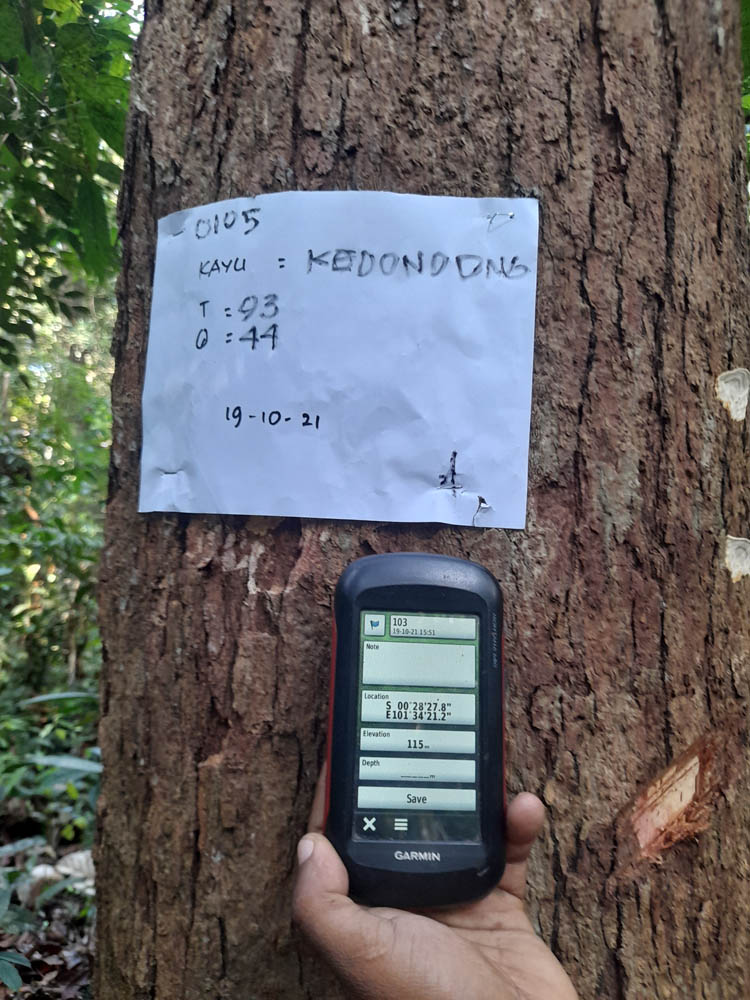 0105
KAYU = KEDONDONG
T = 93
Q = 44
19-10-21
103
19-10-21 15:51
Note
Location
S 00°28'27.8"
E101°34'21.2"
Elevation
115m
Depth
_____m
Save
GARMIN